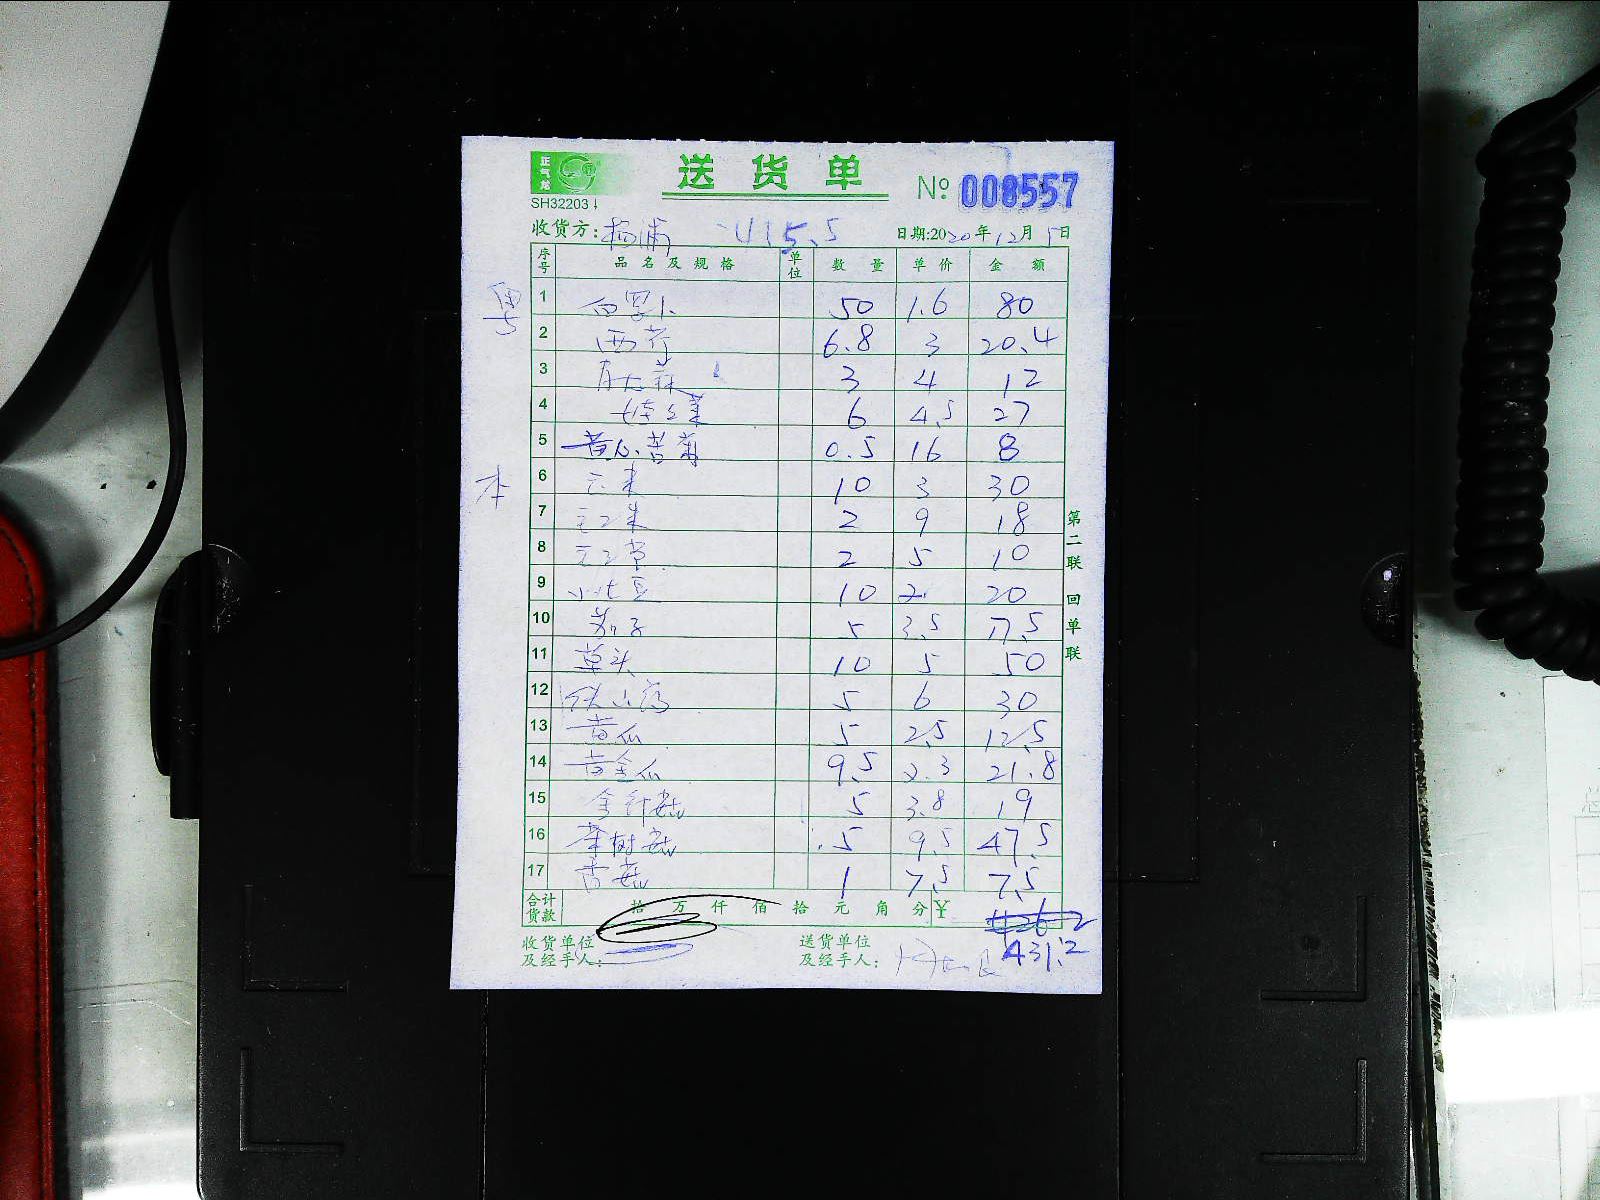 正气龙
SH32203
送货单
№ 008557
收货方: 杨浦 415.5
日期:2020年12月5日
序号 品名及规格 单位 数量 单价 金额
1 白罗卜 50 1.6 80
2 西芹 6.8 3 20.4
3 3 4 12
4 6 4.5 27
5 黄心苦菊 0.5 16 8
6 10 3 30
本
7 2 9 18
8 2 5 10
9 10 2 20
10 茄子 5 3.5 17.5
11 草头 10 5 50
12 铁山药 5 6 30
13 黄瓜 5 2.5 12.5
14 黄金瓜 9.5 2.3 21.8
15 金针菇 5 3.8 19
16 茶树菇 5 9.5 47.5
17 香菇 1 7.5 7.5
合计货款 拾万仟佰拾元角分 ¥
431.2
收货单位及经手人:
送货单位及经手人:
第二联 回单联